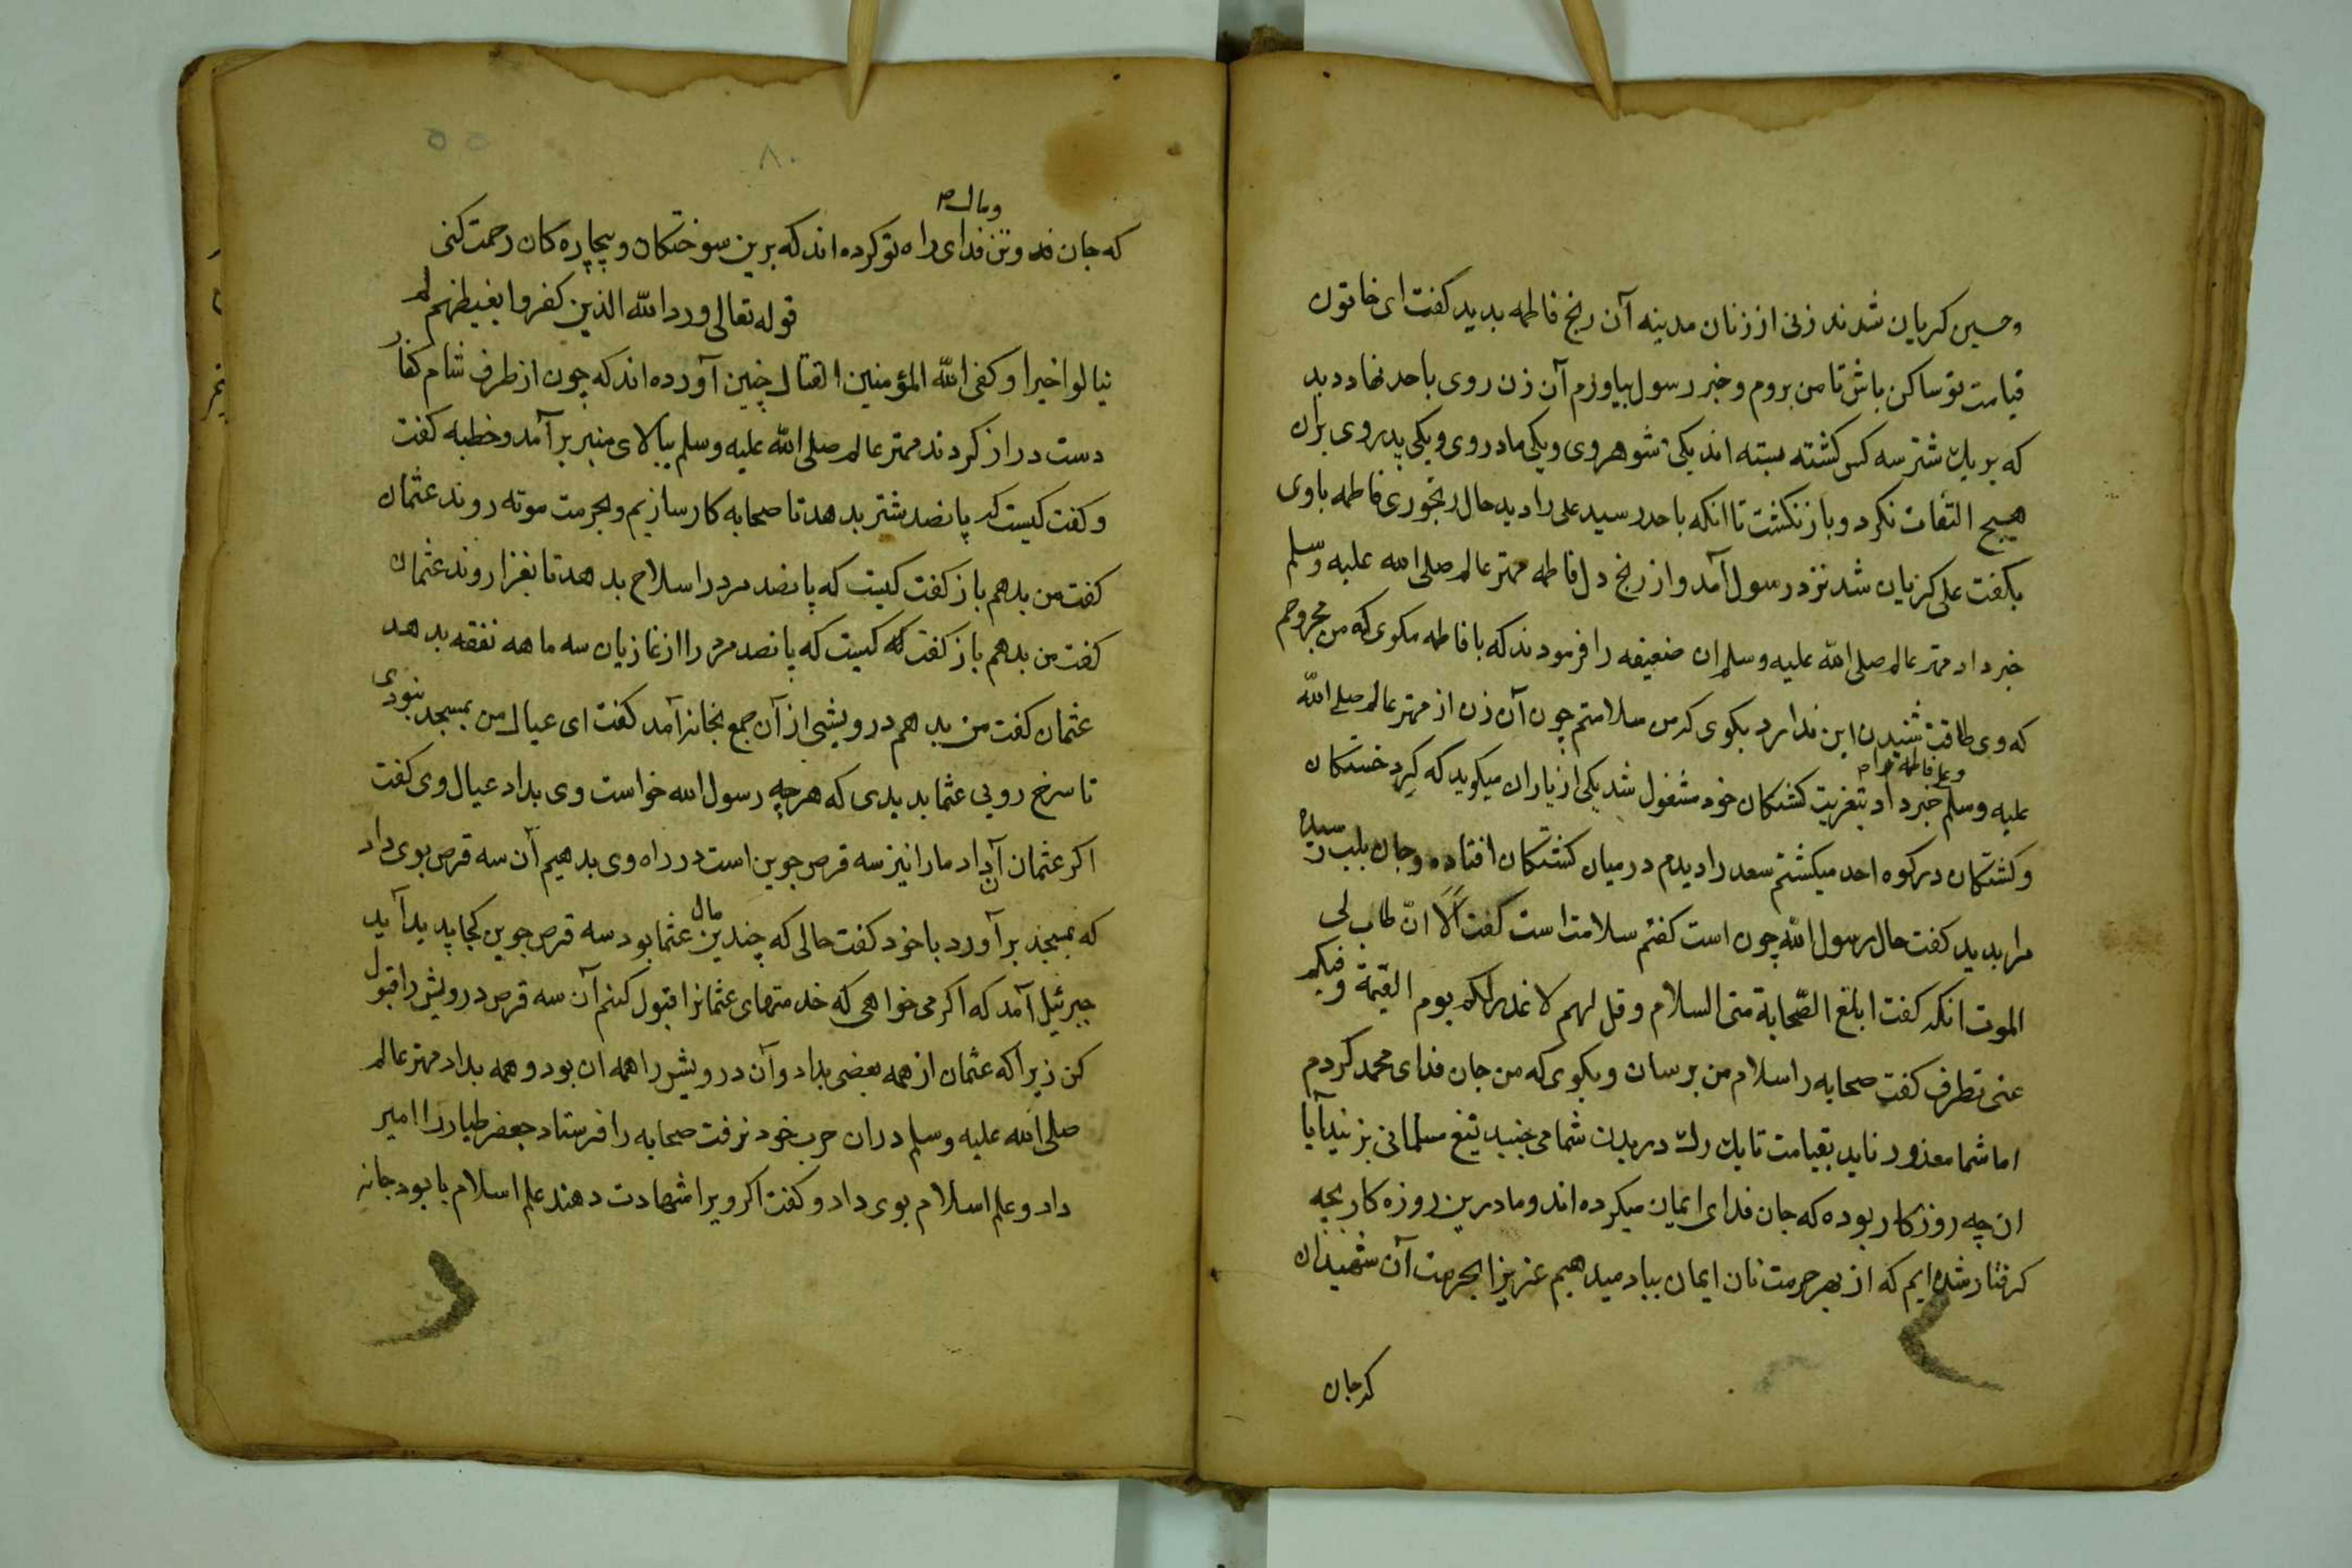 وحسین کریان شدند زنی از زنان مدینه آن رنج فاطمه بدید کفت ای خاتون
قیامت تو ساکن باش تا من بروم و خبر رسول بیاورم آن زن روی باحد نهاد دید
که بریک شتر سه کس کشته بسته اند یکی شوهر وی و یکی مادر وی و یکی پدر وی بران
هیچ التفات نکرد و باز نکشت تا انکه باحد رسید علی را دید حال رنجوری فاطمه باوی
بکفت علی کریان شد نزد رسول آمد و از رنج دل فاطمه مهتر عالم صلی الله علیه وسلم
خبر داد مهتر عالم صلی الله علیه وسلم ان ضعیفه را فرمودند که با فاطمه مکوی که من مجروحم
که وی طاقت شنیدن این ندارد بکوی که من سلامتم چون آن زن از مهتر عالم صلی الله
و علی فاطمه را
علیه وسلم خبر داد بتعزیت کشتکان خود مشغول شد یکی از یاران میکوید که کرد خستکان
و کشتکان در کوه احد میکشتم سعد را دیدم در میان کشتکان افتاده و جان بلب رسیده
مرا بدید کفت حال رسول الله چون است کفتم سلامت است کفت الا ان طاب لی
الموت انکه کفت ابلغ الصحابة منی السلام و قل لهم لا عذر لکم یوم القیمة و فیکم
عنی تطرف کفت صحابه را سلام من برسان و بکوی که من جان فدای محمد کردم
اما شما معذور ناید بقیامت تا یک رک در بدن شما می جنبد تیغ مسلمانی بزنید آیا
ان چه روزکار بوده که جان فدای ایمان میکرده اند و ما درین روزه کار بچه
کرفتار شده ایم که از بهر حرمت نان ایمان بباد میدهیم عزیزا بحرمت آن شهیدان
که جان
۸۰
و مال
که جان و تن فدای راه تو کرده اند که برین سوختکان و بیچاره کان رحمت کنی
قوله تعالی ورد الله الذین کفروا بغیظهم لم
ینالوا خیرا وکفی الله المؤمنین القتال چنین آورده اند که چون از طرف شام کفار
دست دراز کردند مهتر عالم صلی الله علیه وسلم ببالای منبر برآمد و خطبه کفت
و کفت کیست که پانصد شتر بدهد تا صحابه کار سازیم و بحرمت موته روند عثمان
کفت من بدهم باز کفت کیست که پانصد مرد را سلاح بدهد تا بغزا روند عثمان
کفت من بدهم باز کفت که کیست که پانصد مرد را از غازیان سه ماهه نفقه بدهد
عثمان کفت من بدهم درویشی از آن جمع بخانه آمد کفت ای عیال من بمسجد نبودی
تا سرخ رویی عثما بدیدی که هرچه رسول الله خواست وی بداد عیال وی کفت
اکر عثمان آن داد ما را نیز سه قرص جوین است در راه وی بدهیم آن سه قرص بوی داد
که بمسجد برآورد با خود کفت حالی که چندین مال عثما بود سه قرص جوین کجا پدید آید
جبرئیل آمد که اکر می خواهی که خدمتهای عثمانرا قبول کنم آن سه قرص درویش را قبول
کن زیرا که عثمان از همه بعضی بداد و آن درویش را همه ان بود و همه بداد مهتر عالم
صلی الله علیه وسلم دران حرب خود نرفت صحابه را فرستاد جعفر طیار را امیر
داد و علم اسلام بوی داد و کفت اکر ویرا شهادت دهند علم اسلام با بود جانه